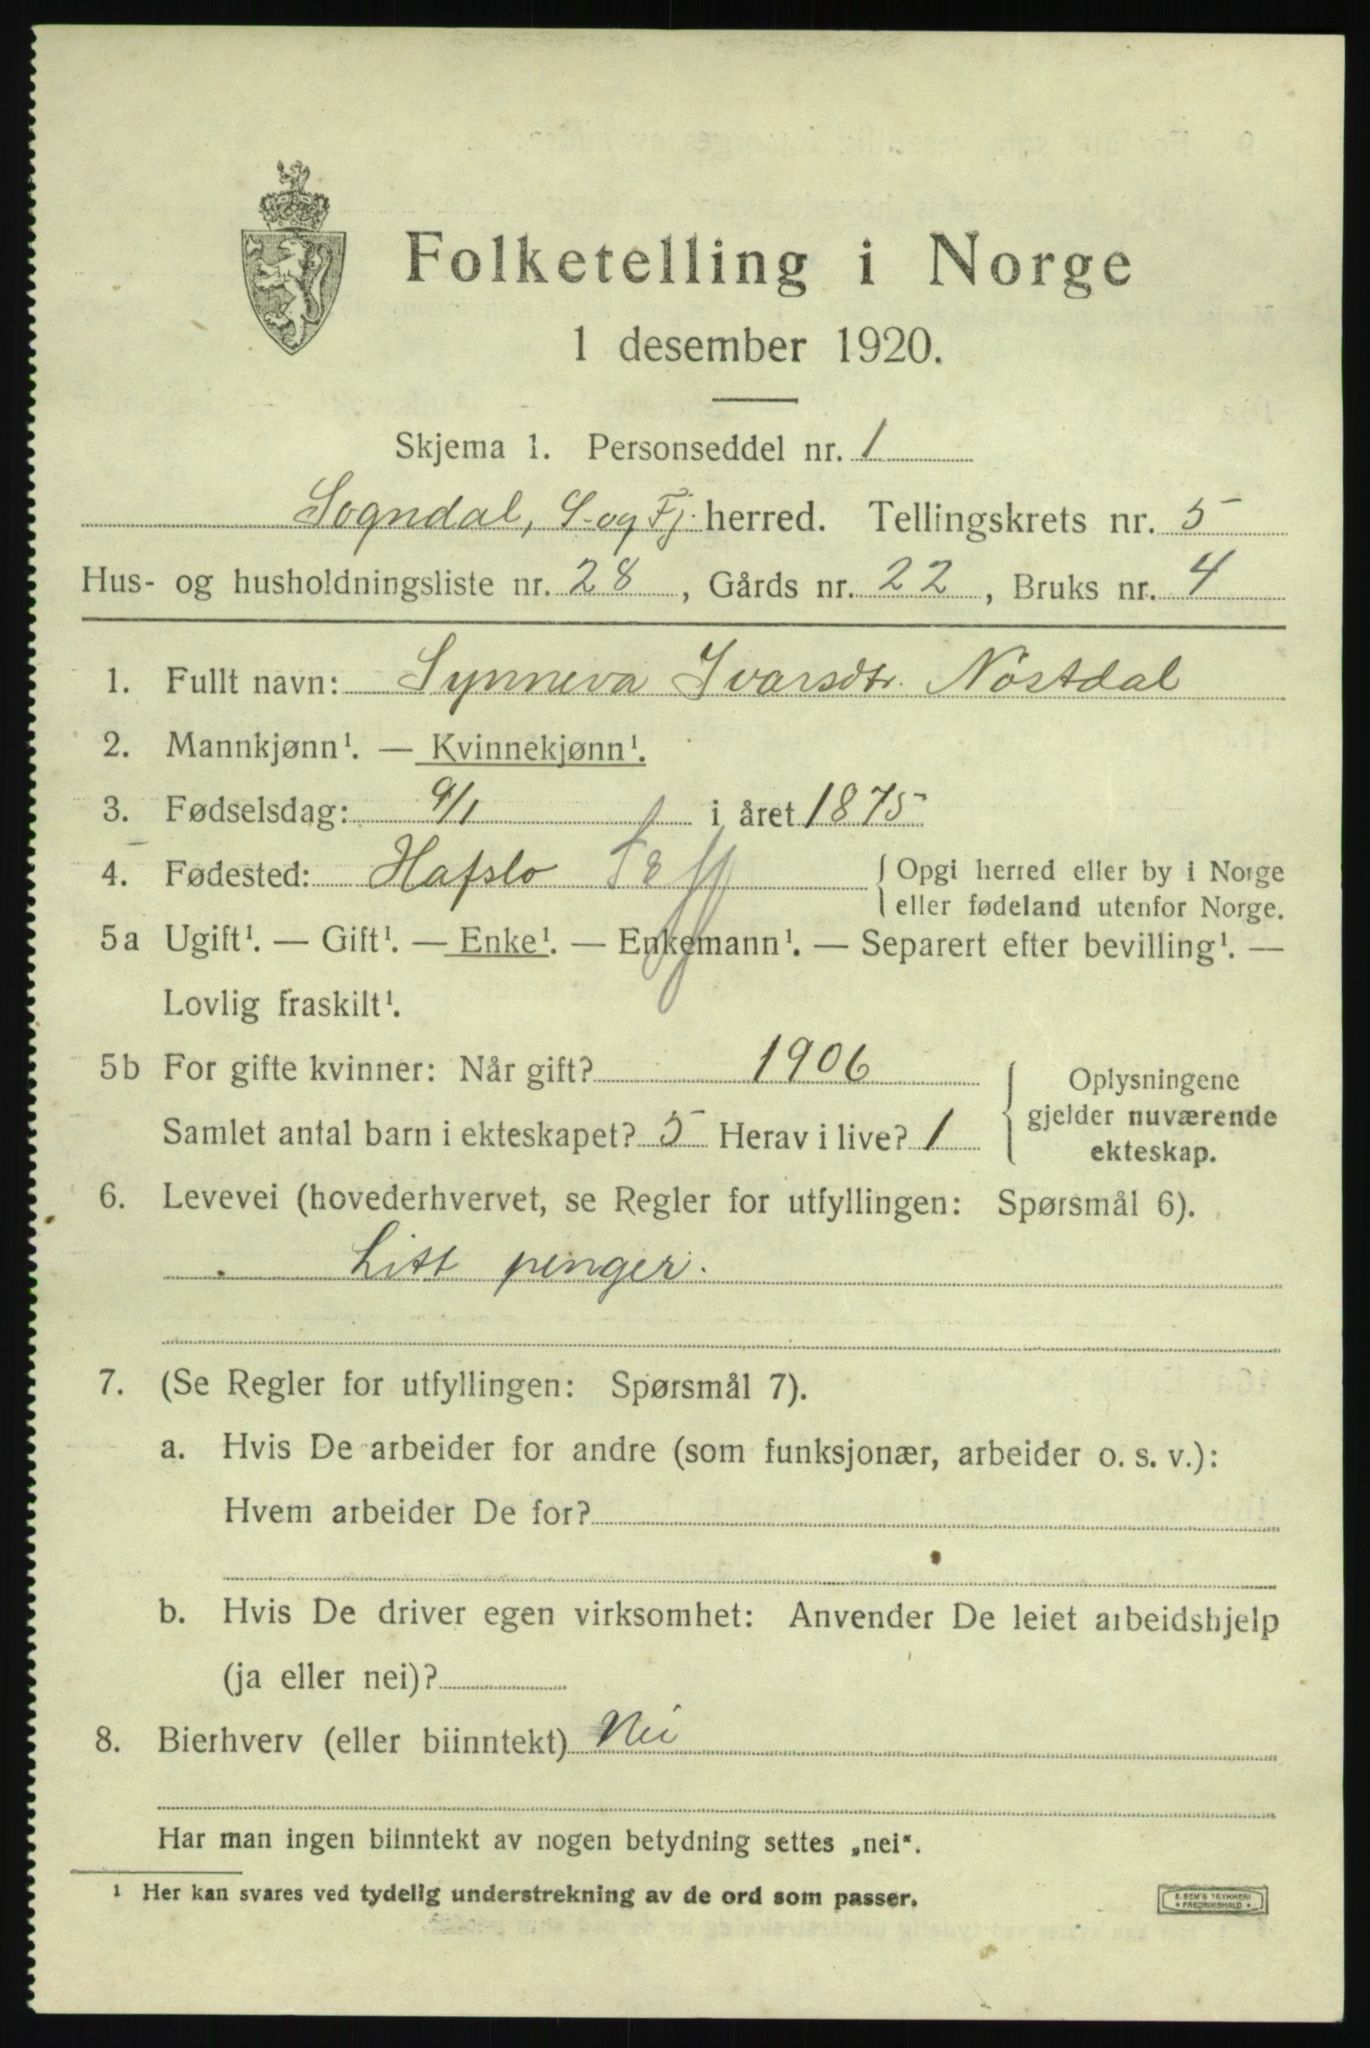 Folketelling i Norge
1 desember 1920.
Skjema 1. Personseddel nr. 1
Sogndal, S. og Fj. herred. Tellingskrets nr. 5
Hus- og husholdningsliste nr. 28, Gårds nr. 22, Bruks nr. 4
1. Fullt navn: Synneva Ivarsdtr. Nöstdal
2. Mannkjønn¹. — Kvinnekjønn¹.
3. Fødselsdag: 9/1 i året 1875
4. Fødested: Hafslo {Opgi herred eller by i Norge
eller fødeland utenfor Norge.
5a Ugift¹. — Gift¹. — Enke¹. — Enkemann¹. — Separert efter bevilling¹. —
Lovlig fraskilt¹.
5b For gifte kvinner: Når gift? 1906
Samlet antal barn i ekteskapet? 5 Herav i live? 1
{Oplysningene
gjelder nuværende
ekteskap.
6. Levevei (hovederhvervet, se Regler for utfyllingen: Spørsmål 6).
Litt penger.
7. (Se Regler for utfyllingen: Spørsmål 7).
a. Hvis De arbeider for andre (som funksjonær, arbeider o. s. v.):
Hvem arbeider De for?
b. Hvis De driver egen virksomhet: Anvender De leiet arbeidshjelp
(ja eller nei)?
8. Bierhverv (eller biinntekt) Nei
Har man ingen biinntekt av nogen betydning settes „nei“.
¹ Her kan svares ved tydelig understrekning av de ord som passer.
E. SEM'S TRYKKERI
* FREDRIKSHALD *